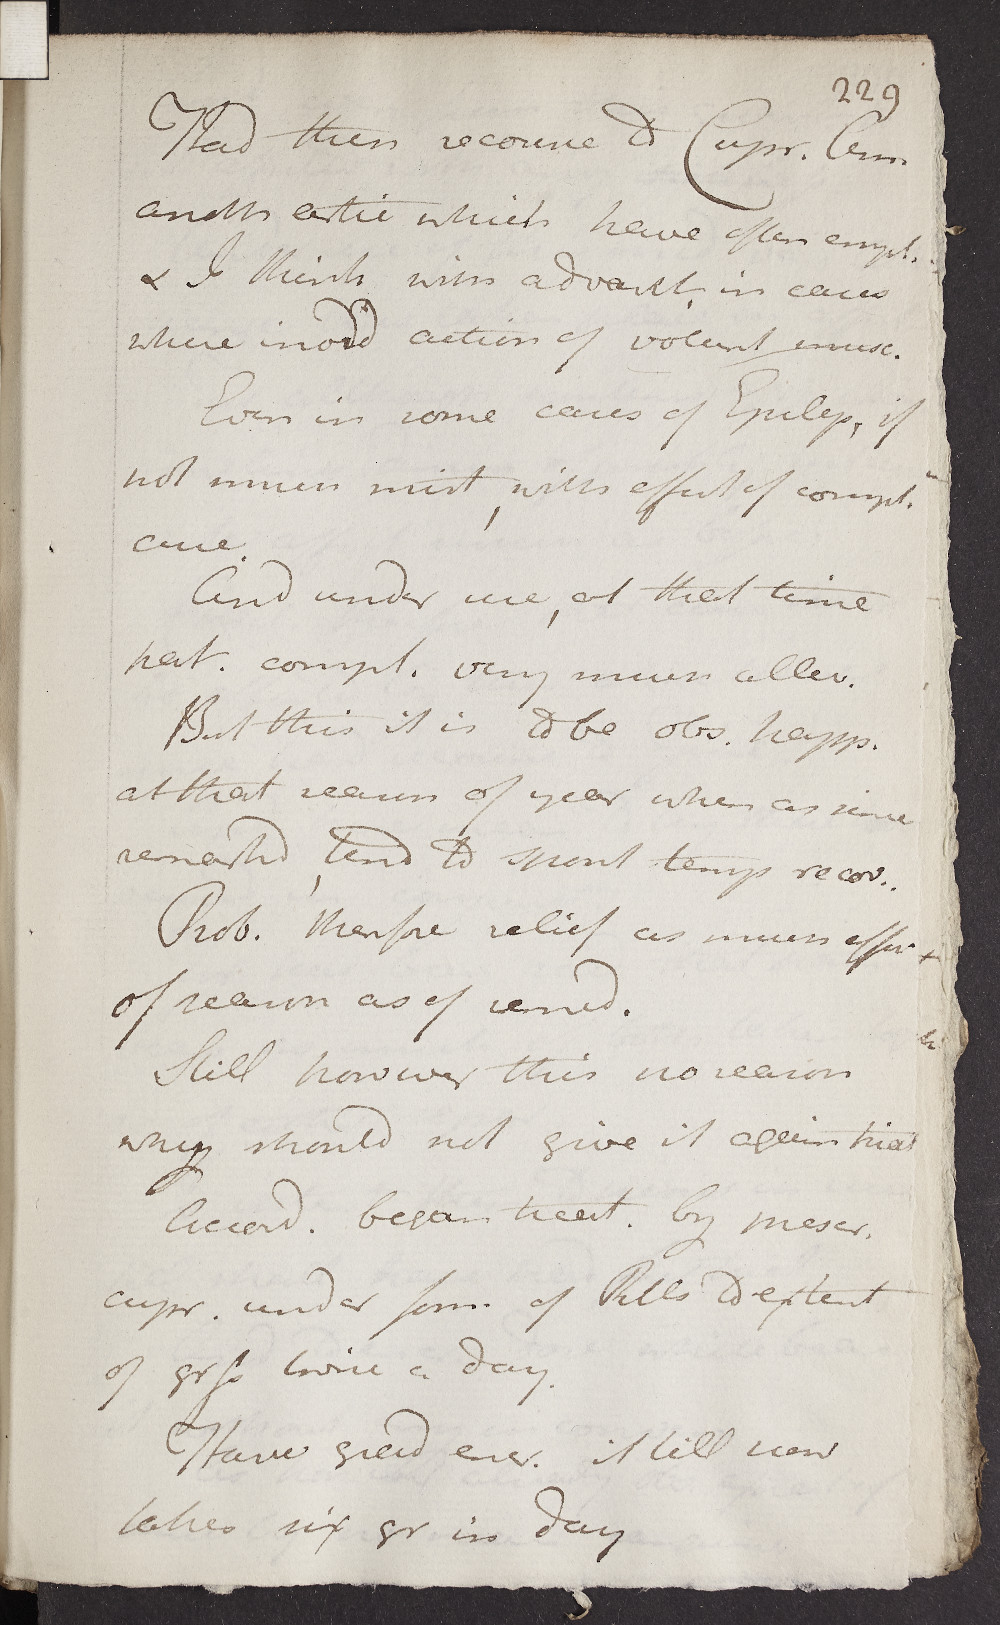 229
Had then recourse to Cupr. Amm
another artic which have often empl.
& I think with advant. in cases
where inord action of volunt musc.
Even in some cases of Epilep, if
not much mist, with effect of compl.
cure.
And under use, at that time
pat. compl. very much allev.
But this it is to be obs. happ.
at that season of year when as since
remarkd, tend to spont temp recov..
Prob. therefore relief as much effec
of season as of remed.
Still however this no reason
why should not give it again trial
Accord. began treat. by
cupr. under form of Pills to extent
of grss twice a day.
Have grad encr. it till now
takes six gr in day